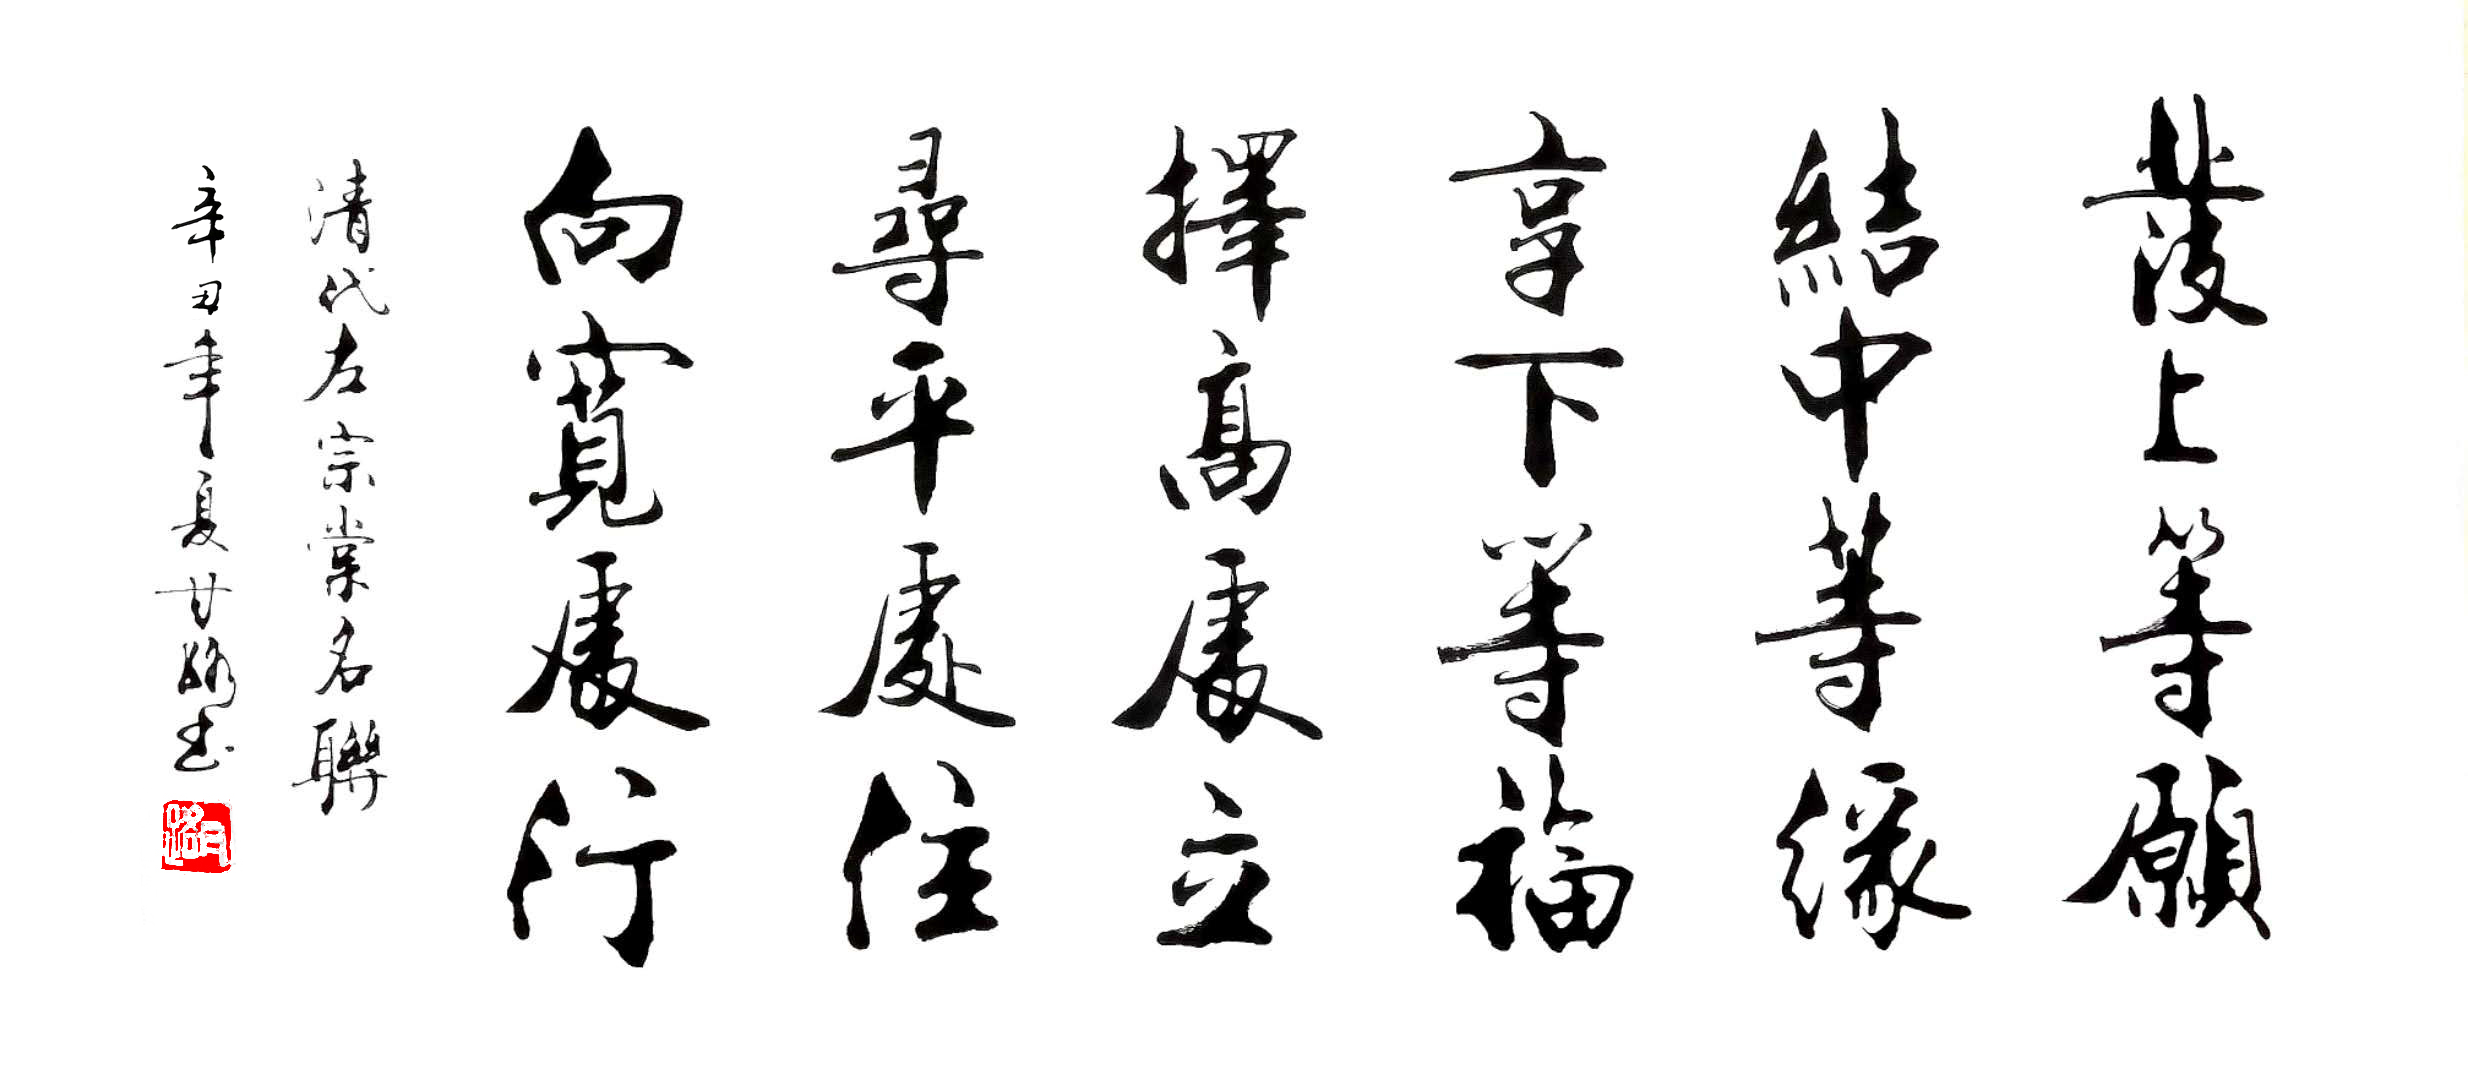 發上等願
結中等緣
享下等福
擇高處立
尋平處住
向寬處行
清代左宗棠名聯
辛丑年夏甘路書